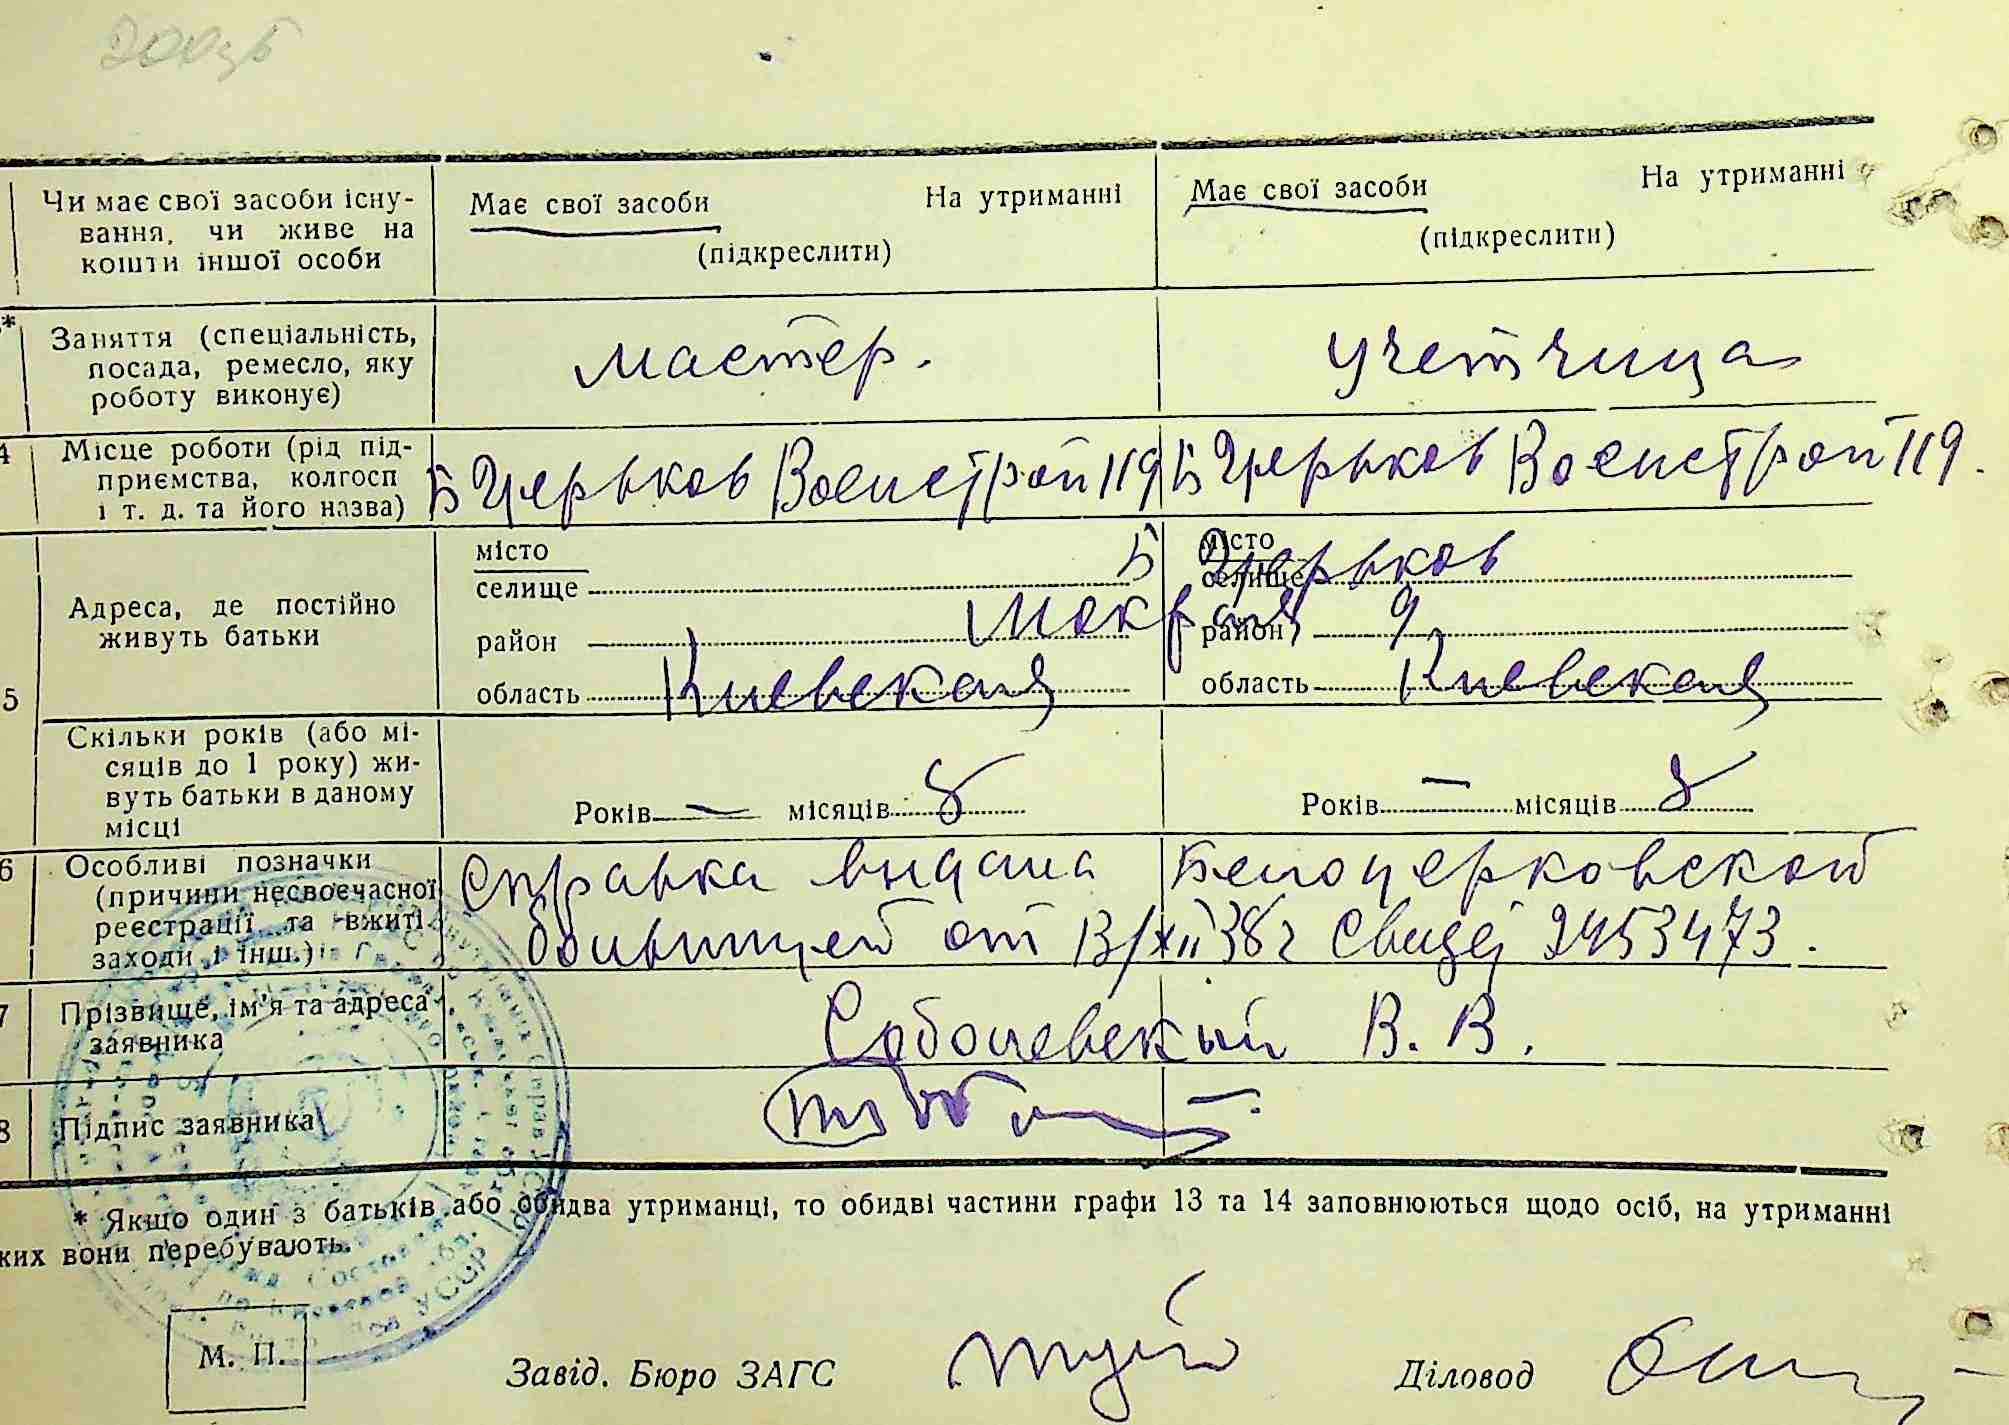 Чи має свої засоби існу-
вання, чи живе на
кошти іншої особи
Має свої засоби На утриманні
(підкреслити)
Має свої засоби На утриманні
(підкреслити)
*
Заняття (спеціальність,
посада, ремесло, яку
роботу виконує)
мастер.
учетчица
4
Місце роботи (рід під-
приємства, колгосп
і т. д. та його назва)
Б Церьков Военстрой 119
Б Церьков Военстрой 119.
5
Адреса, де постійно
живуть батьки
місто
селище
район
область Киевская
Б Церьков
Мокрая 9
місто
селище
район
область Киевская
Скільки років (або мі-
сяців до 1 року) жи-
вуть батьки в даному
місці
Років — місяців 8
Років — місяців 8
6
Особливі позначки
(причини несвоєчасної
реєстрації та вжиті
заходи і інш.)
Справка выдана Белоцерковской
больницей от 13/XII 38 г Свидет 2453473.
7
Прізвище, ім'я та адреса
заявника
Соболевский В. В.
8
Підпис заявника
* Якщо один з батьків або обидва утриманці, то обидві частини графи 13 та 14 заповнюються щодо осіб, на утриманні
ких вони перебувають.
М. П.
Завід. Бюро ЗАГС
Діловод